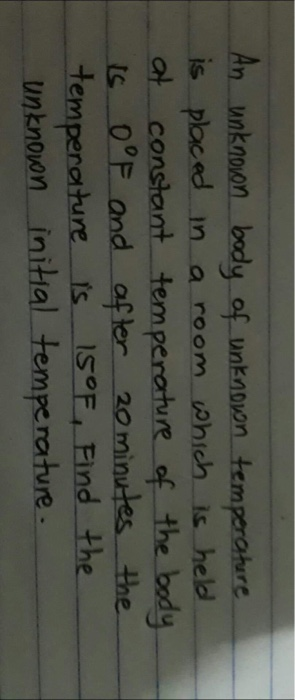 An unknown body of unknown temperature
is placed in a room which is held
at constant temperature of the body
is 0°F and after 20 minutes the
temperature is 15°F, Find the
unknown initial temperature.